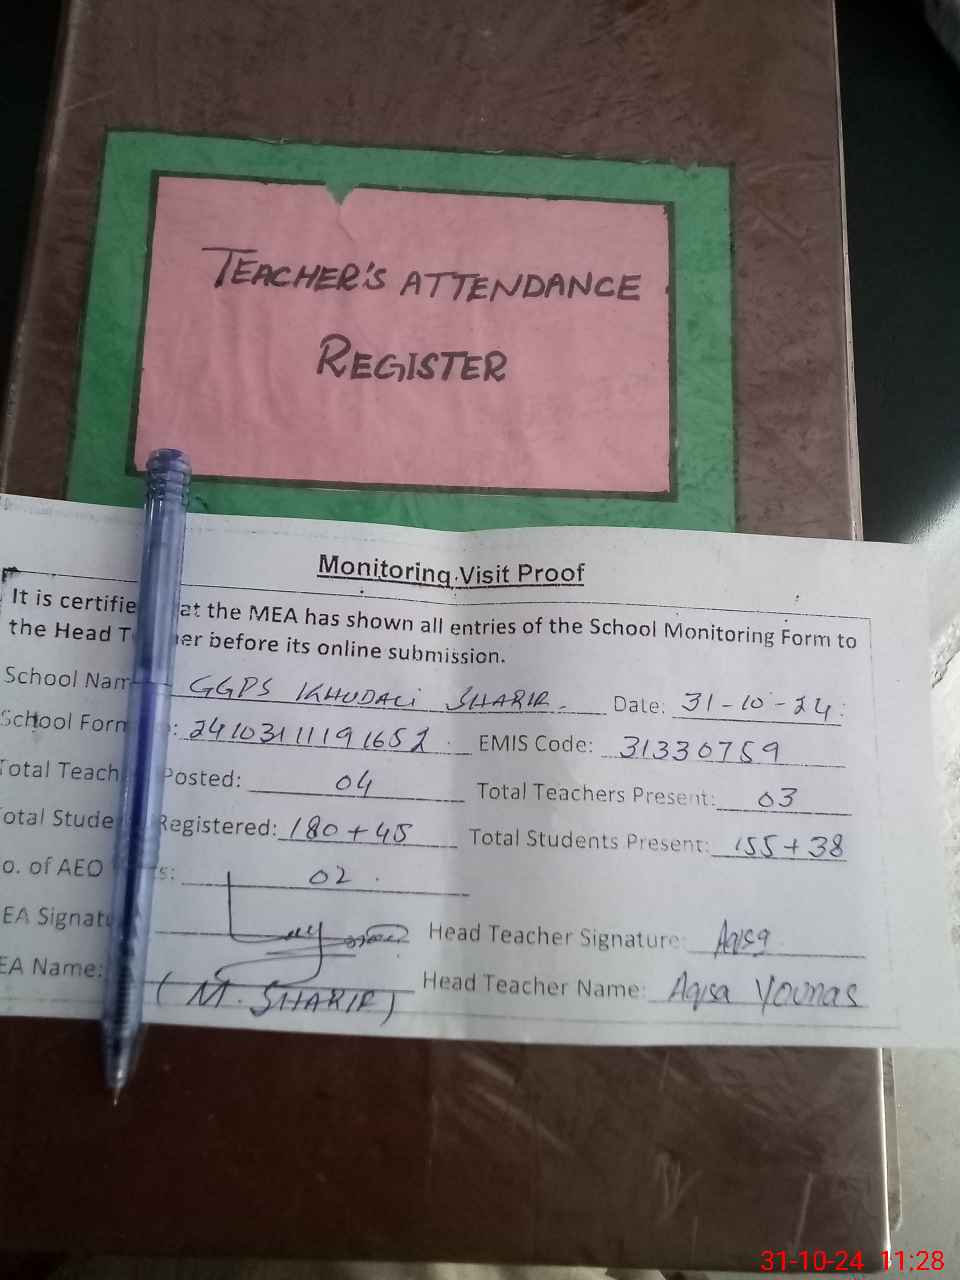 TEACHER'S ATTENDANCE
REGISTER
Monitoring Visit Proof
It is certifie at the MEA has shown all entries of the School Monitoring Form to
the Head T her before its online submission.
School Nam GGPS KHUDALI SHARIF. Date: 31-10-24
School Form : 24103111191652 EMIS Code: 31330759
Total Teach Posted: 04 Total Teachers Present: 03
otal Stude Registered: 180+45 Total Students Present: 155+38
o. of AEO s: 02
EA Signatu Head Teacher Signature: Aqisa
EA Name: (M. SHARIF) Head Teacher Name: Aqisa Younas
31-10-24 11:28